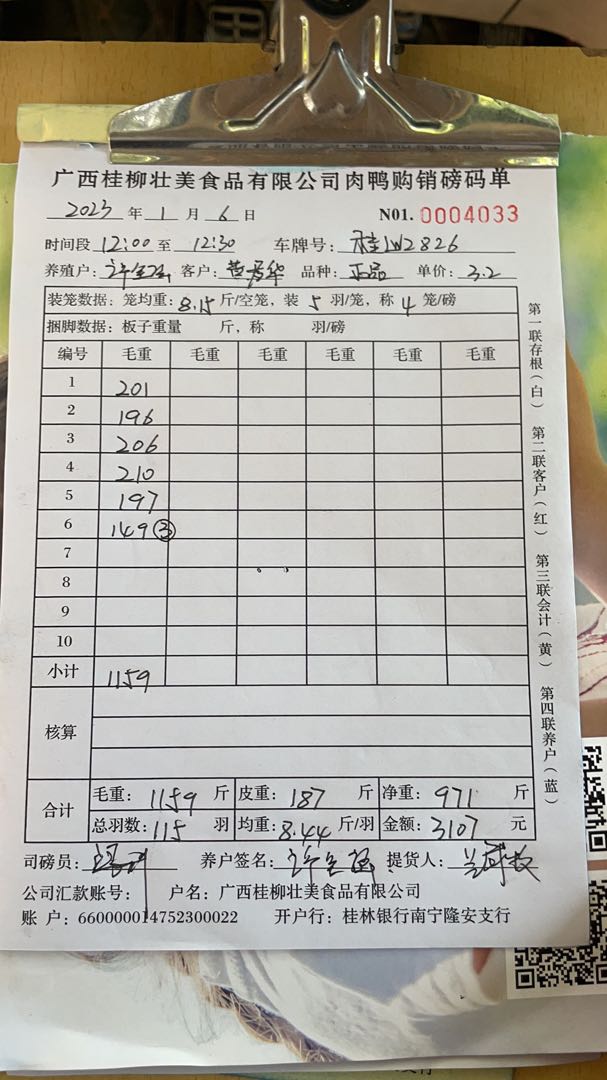 广西桂柳壮美食品有限公司肉鸭购销磅码单
2023 年 1 月 6 日 N01. 0004033
时间段 12:00 至 12:30 车牌号: 桂 W2826
养殖户: 客户: 黄秀华 品种: 正品 单价: 3.2
装笼数据: 笼均重: 8.15 斤/空笼, 装 5 羽/笼, 称 4 笼/磅
捆脚数据: 板子重量 斤, 称 羽/磅
编号 毛重 毛重 毛重 毛重 毛重 毛重
1 201
2 196
3 206
4 210
5 197
6 149 ③
7
8
9
10
小计 1159
核算
合计 毛重: 1159 斤 皮重: 187 斤 净重: 971 斤
总羽数: 115 羽 均重: 8.44 斤/羽 金额: 3107 元
司磅员: 养户签名: 提货人:
公司汇款账号: 户名: 广西桂柳壮美食品有限公司
账 户: 660000014752300022 开户行: 桂林银行南宁隆安支行
第一联存根(白) 第二联客户(红) 第三联会计(黄) 第四联养户(蓝)